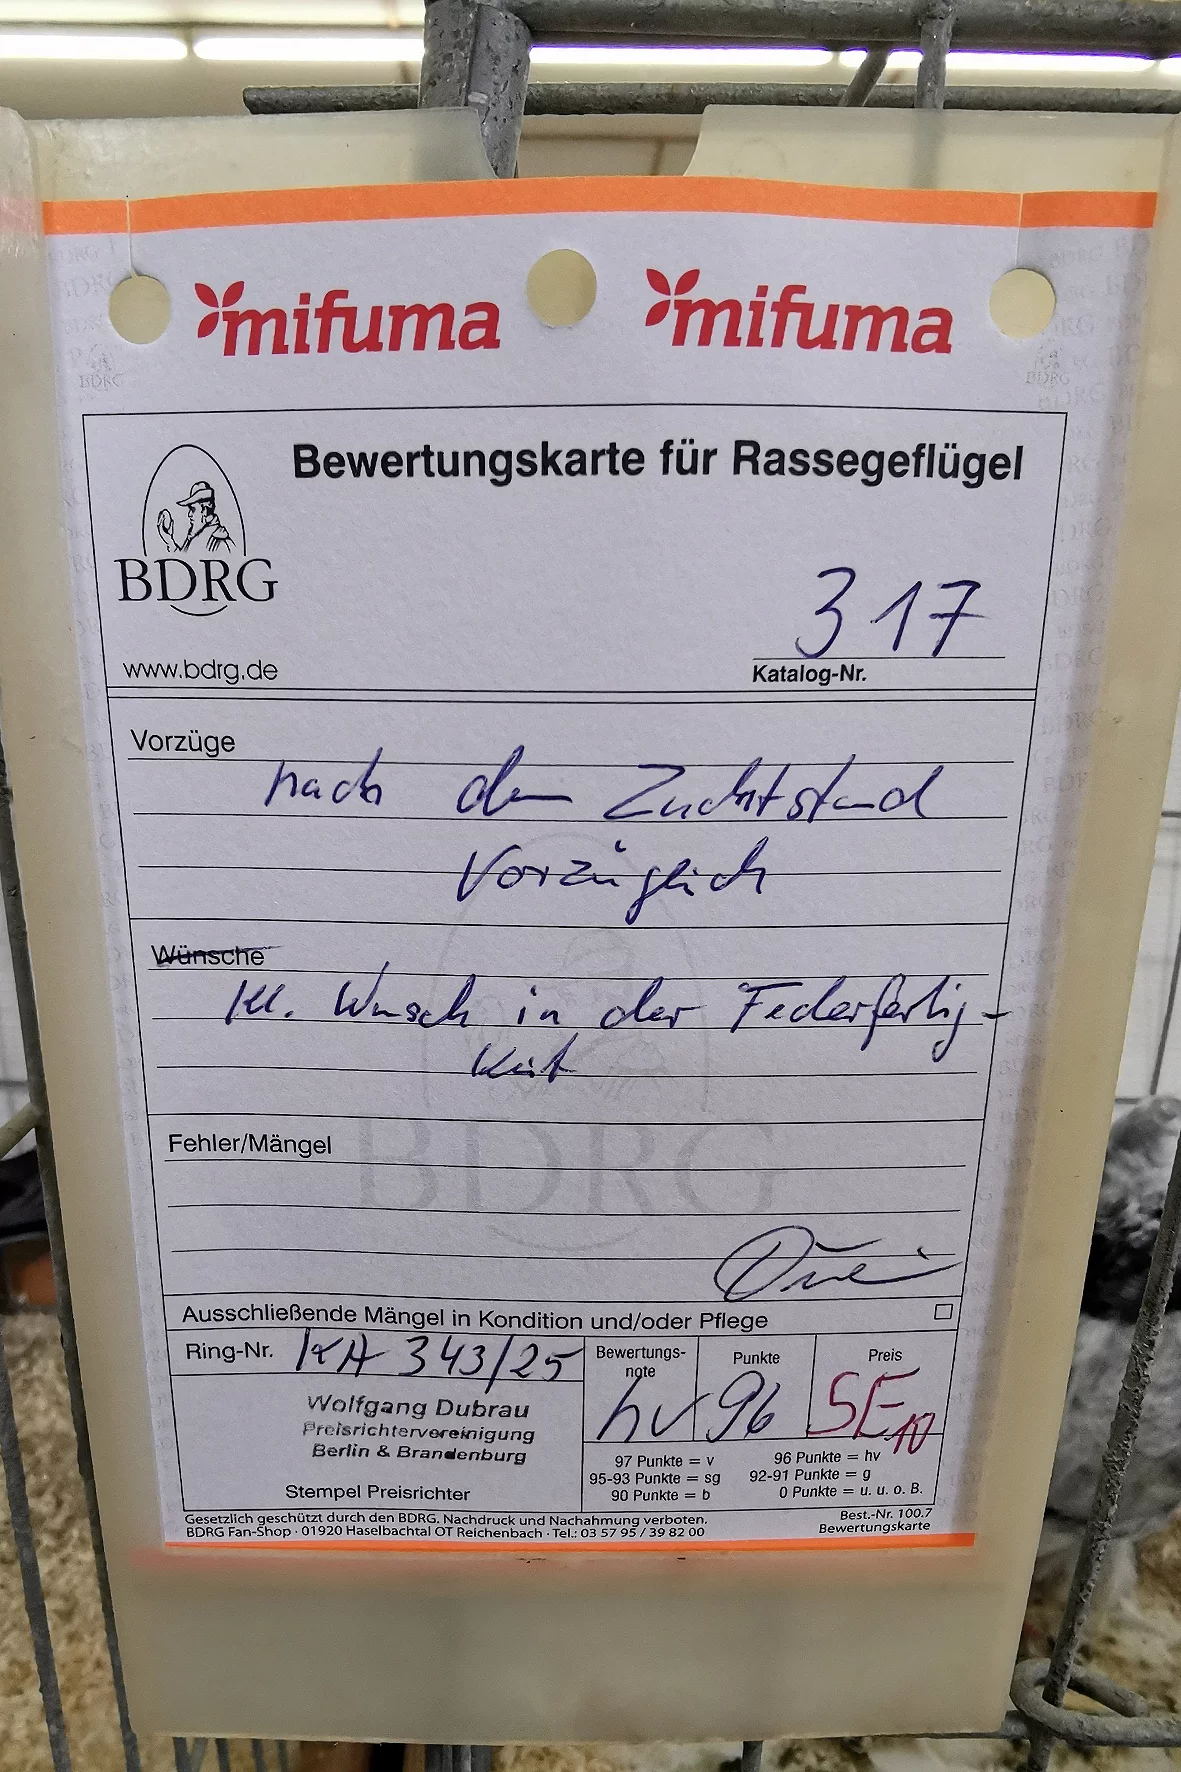 mifuma mifuma
Bewertungskarte für Rassegeflügel
BDRG
www.bdrg.de
317
Katalog-Nr.
Vorzüge
nach dem Zuchtstand
Vorzüglich
Wünsche
Kl. Wunsch in der Federfertig-
keit
Fehler/Mängel
Ausschließende Mängel in Kondition und/oder Pflege
Ring-Nr. KA 343/25
Bewertungs-
note
hv
Punkte
96
Preis
SE 10
Wolfgang Dubrau
Preisrichtervereinigung
Berlin & Brandenburg
Stempel Preisrichter
97 Punkte = v 96 Punkte = hv
95-93 Punkte = sg 92-91 Punkte = g
90 Punkte = b 0 Punkte = u. u. o. B.
Gesetzlich geschützt durch den BDRG. Nachdruck und Nachahmung verboten.
BDRG Fan-Shop · 01920 Haselbachtal OT Reichenbach · Tel.: 03 57 95 / 39 82 00
Best.-Nr. 100.7
Bewertungskarte